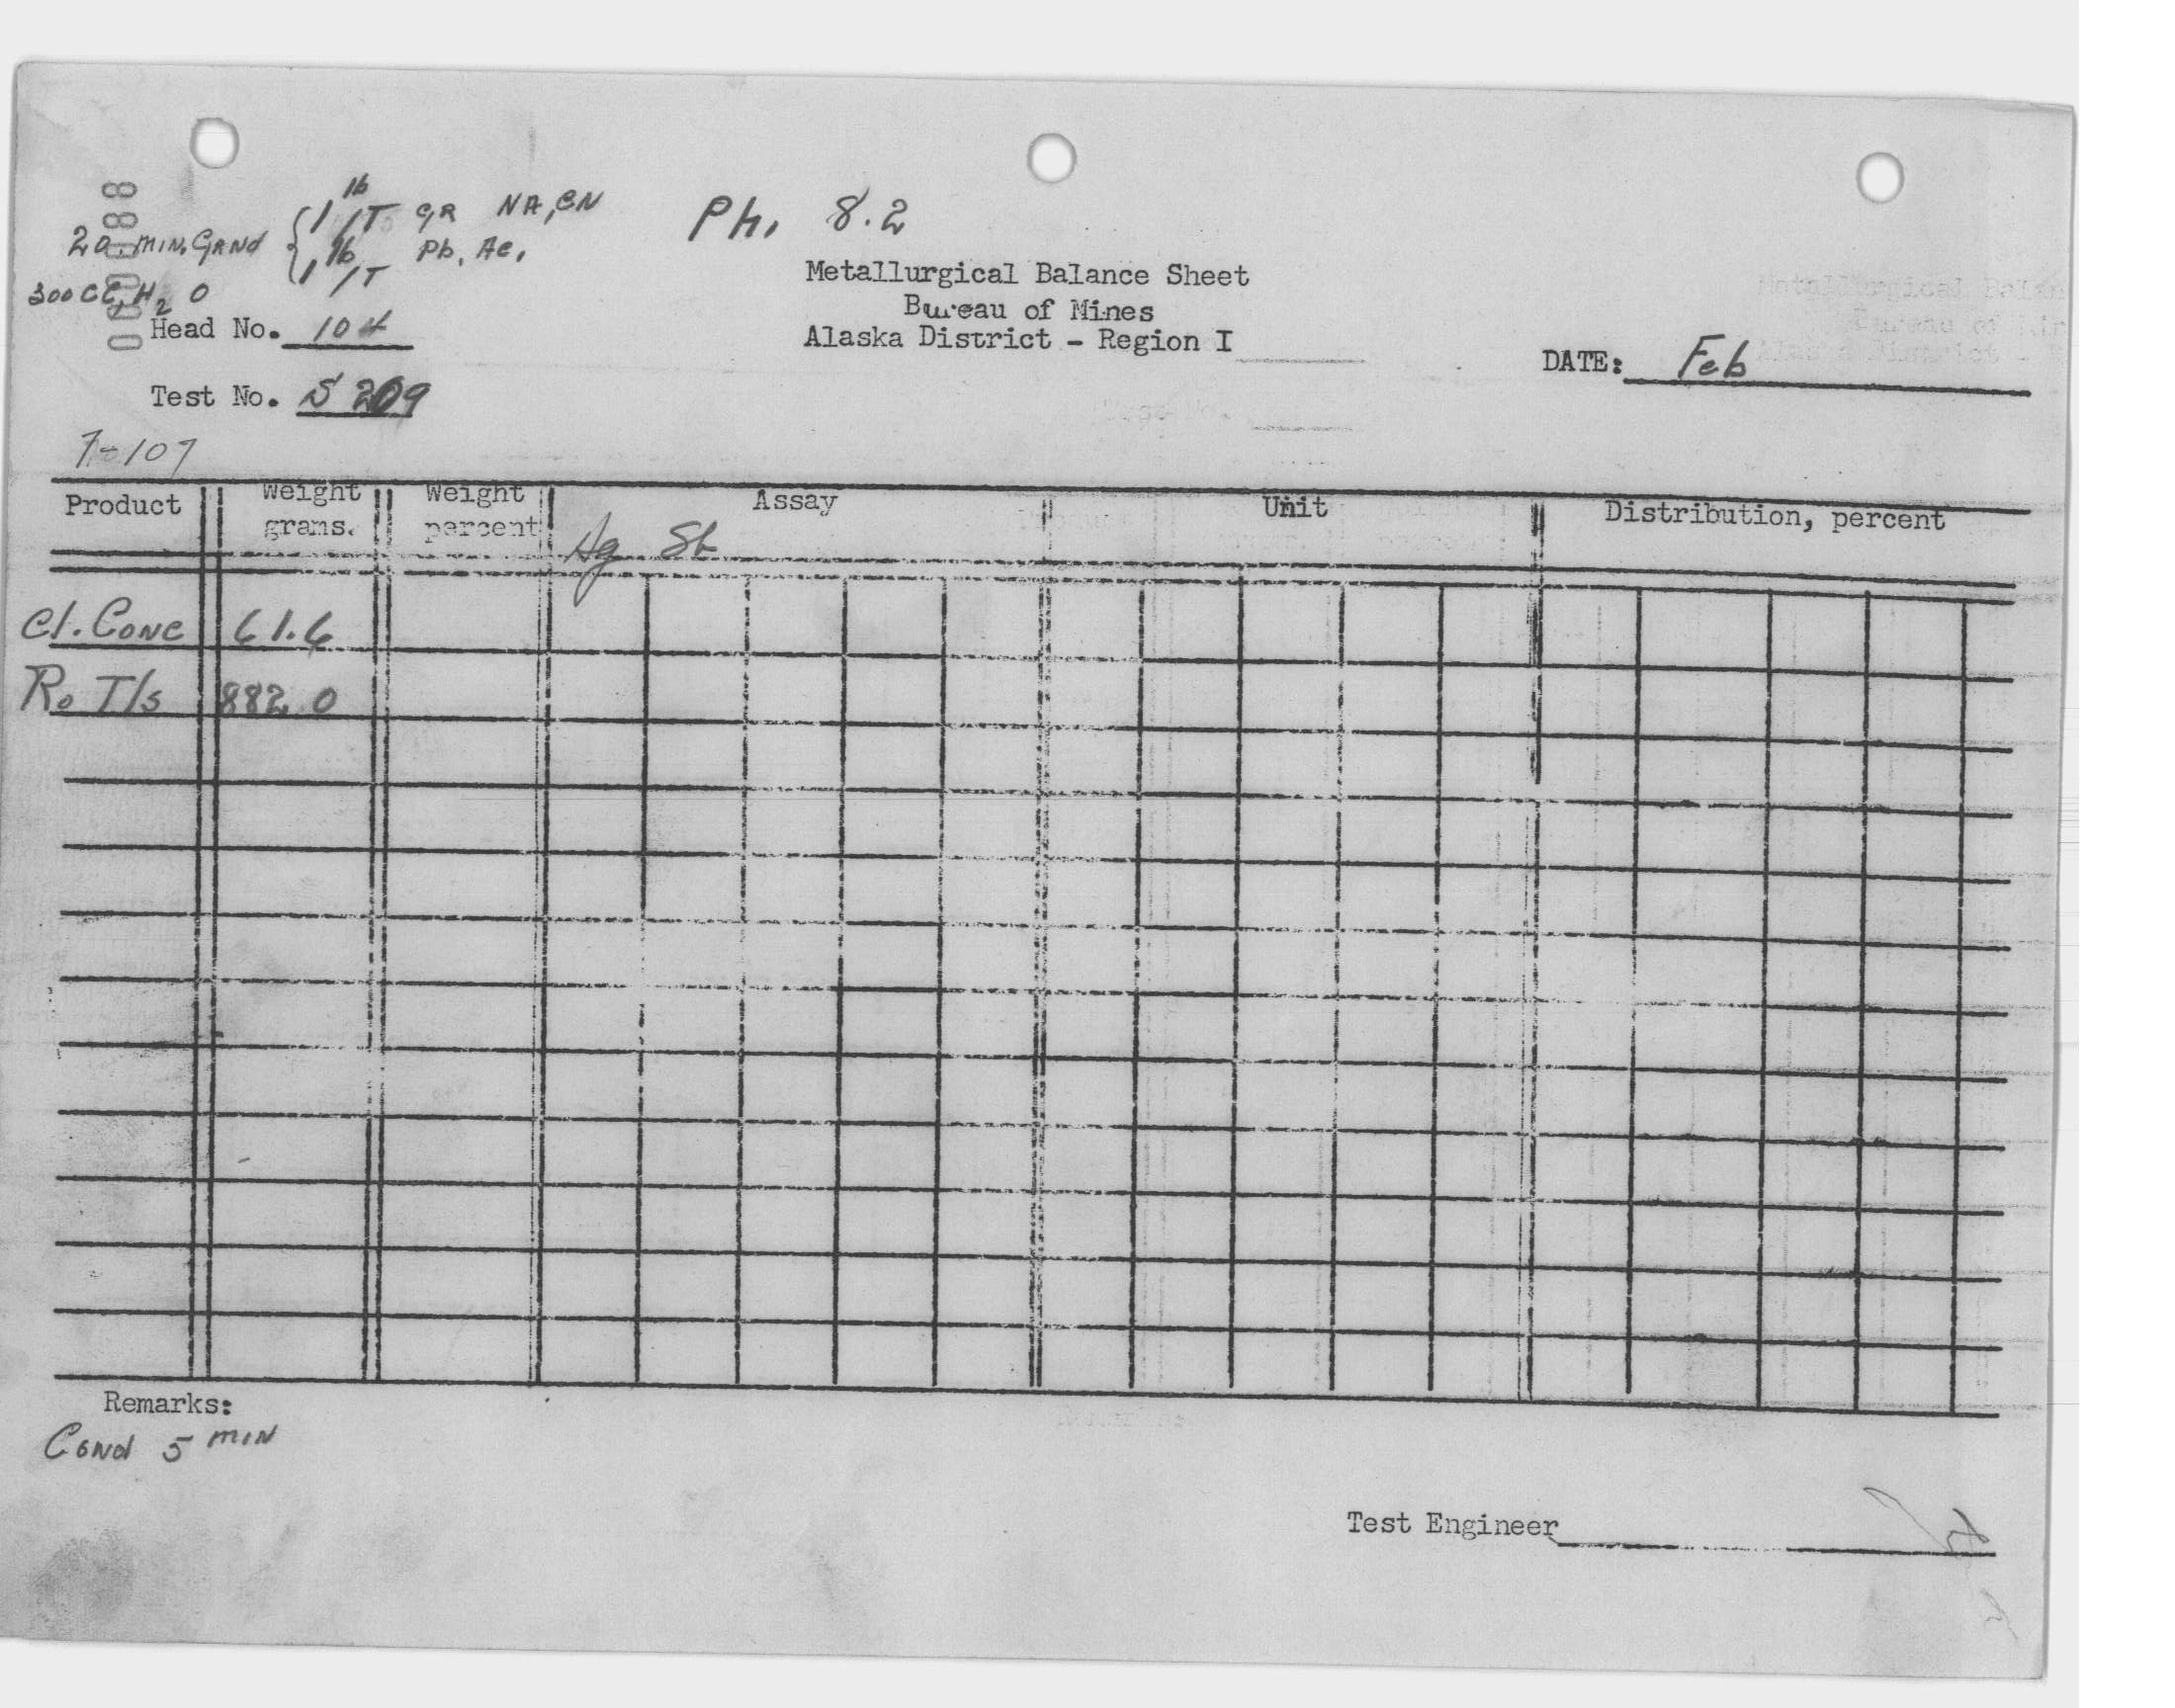 000088
1 lb/T gR NA, CN
20. MIN. GRNd { 1 lb/T Pb. Ac.
300 CC, H2 O
Ph, 8.2
Metallurgical Balance Sheet
Bureau of Mines
Alaska District - Region I
Head No. 104
DATE: Feb
Test No. S 209
7-107
Product Weight grams. Weight percent Assay Unit Distribution, percent
Ag Sb
Cl. CONC 61.6
Ro T/s 882.0
Remarks:
Cond 5 MIN
Test Engineer